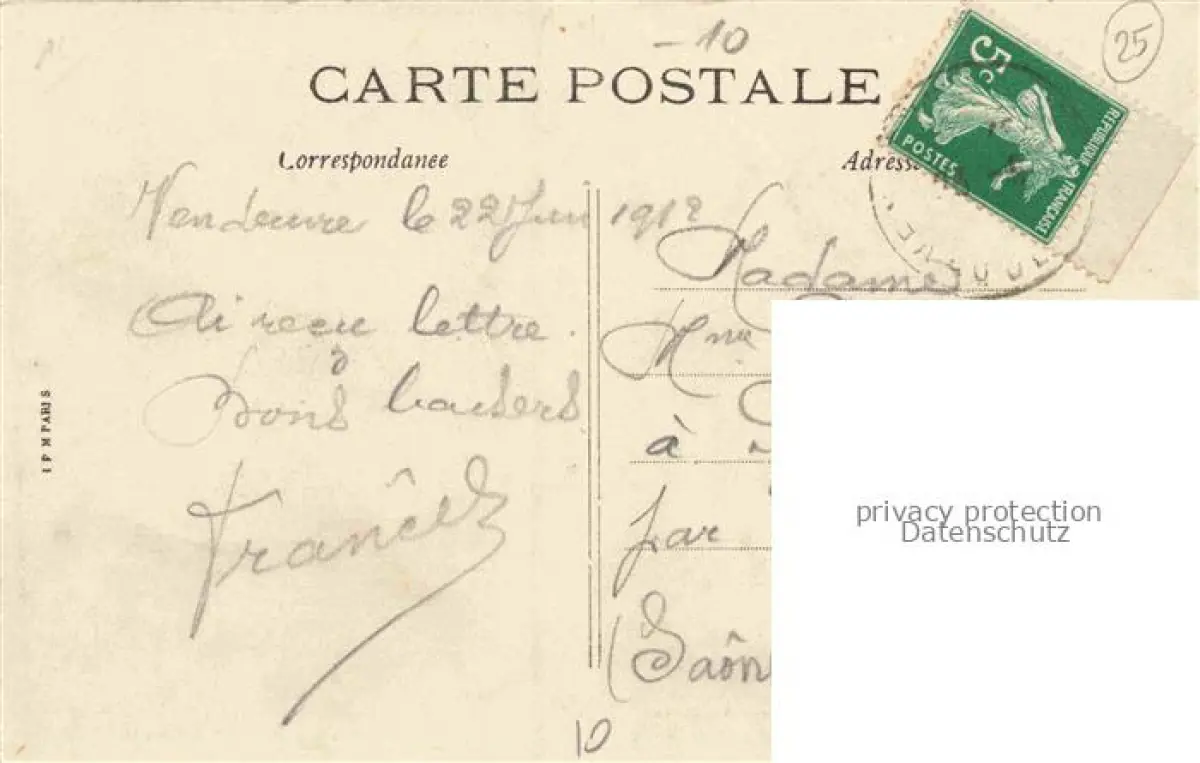 - 10
25
CARTE POSTALE
5c
POSTES
REPUBLIQUE FRANCAISE
Correspondance
Adresse
Vendeuvre le 22 Juin 1912
Ai reçu lettre.
Bons baisers
I P M PARIS
Madame
Mme
à
par
(Saôn
10
privacy protection
Datenschutz